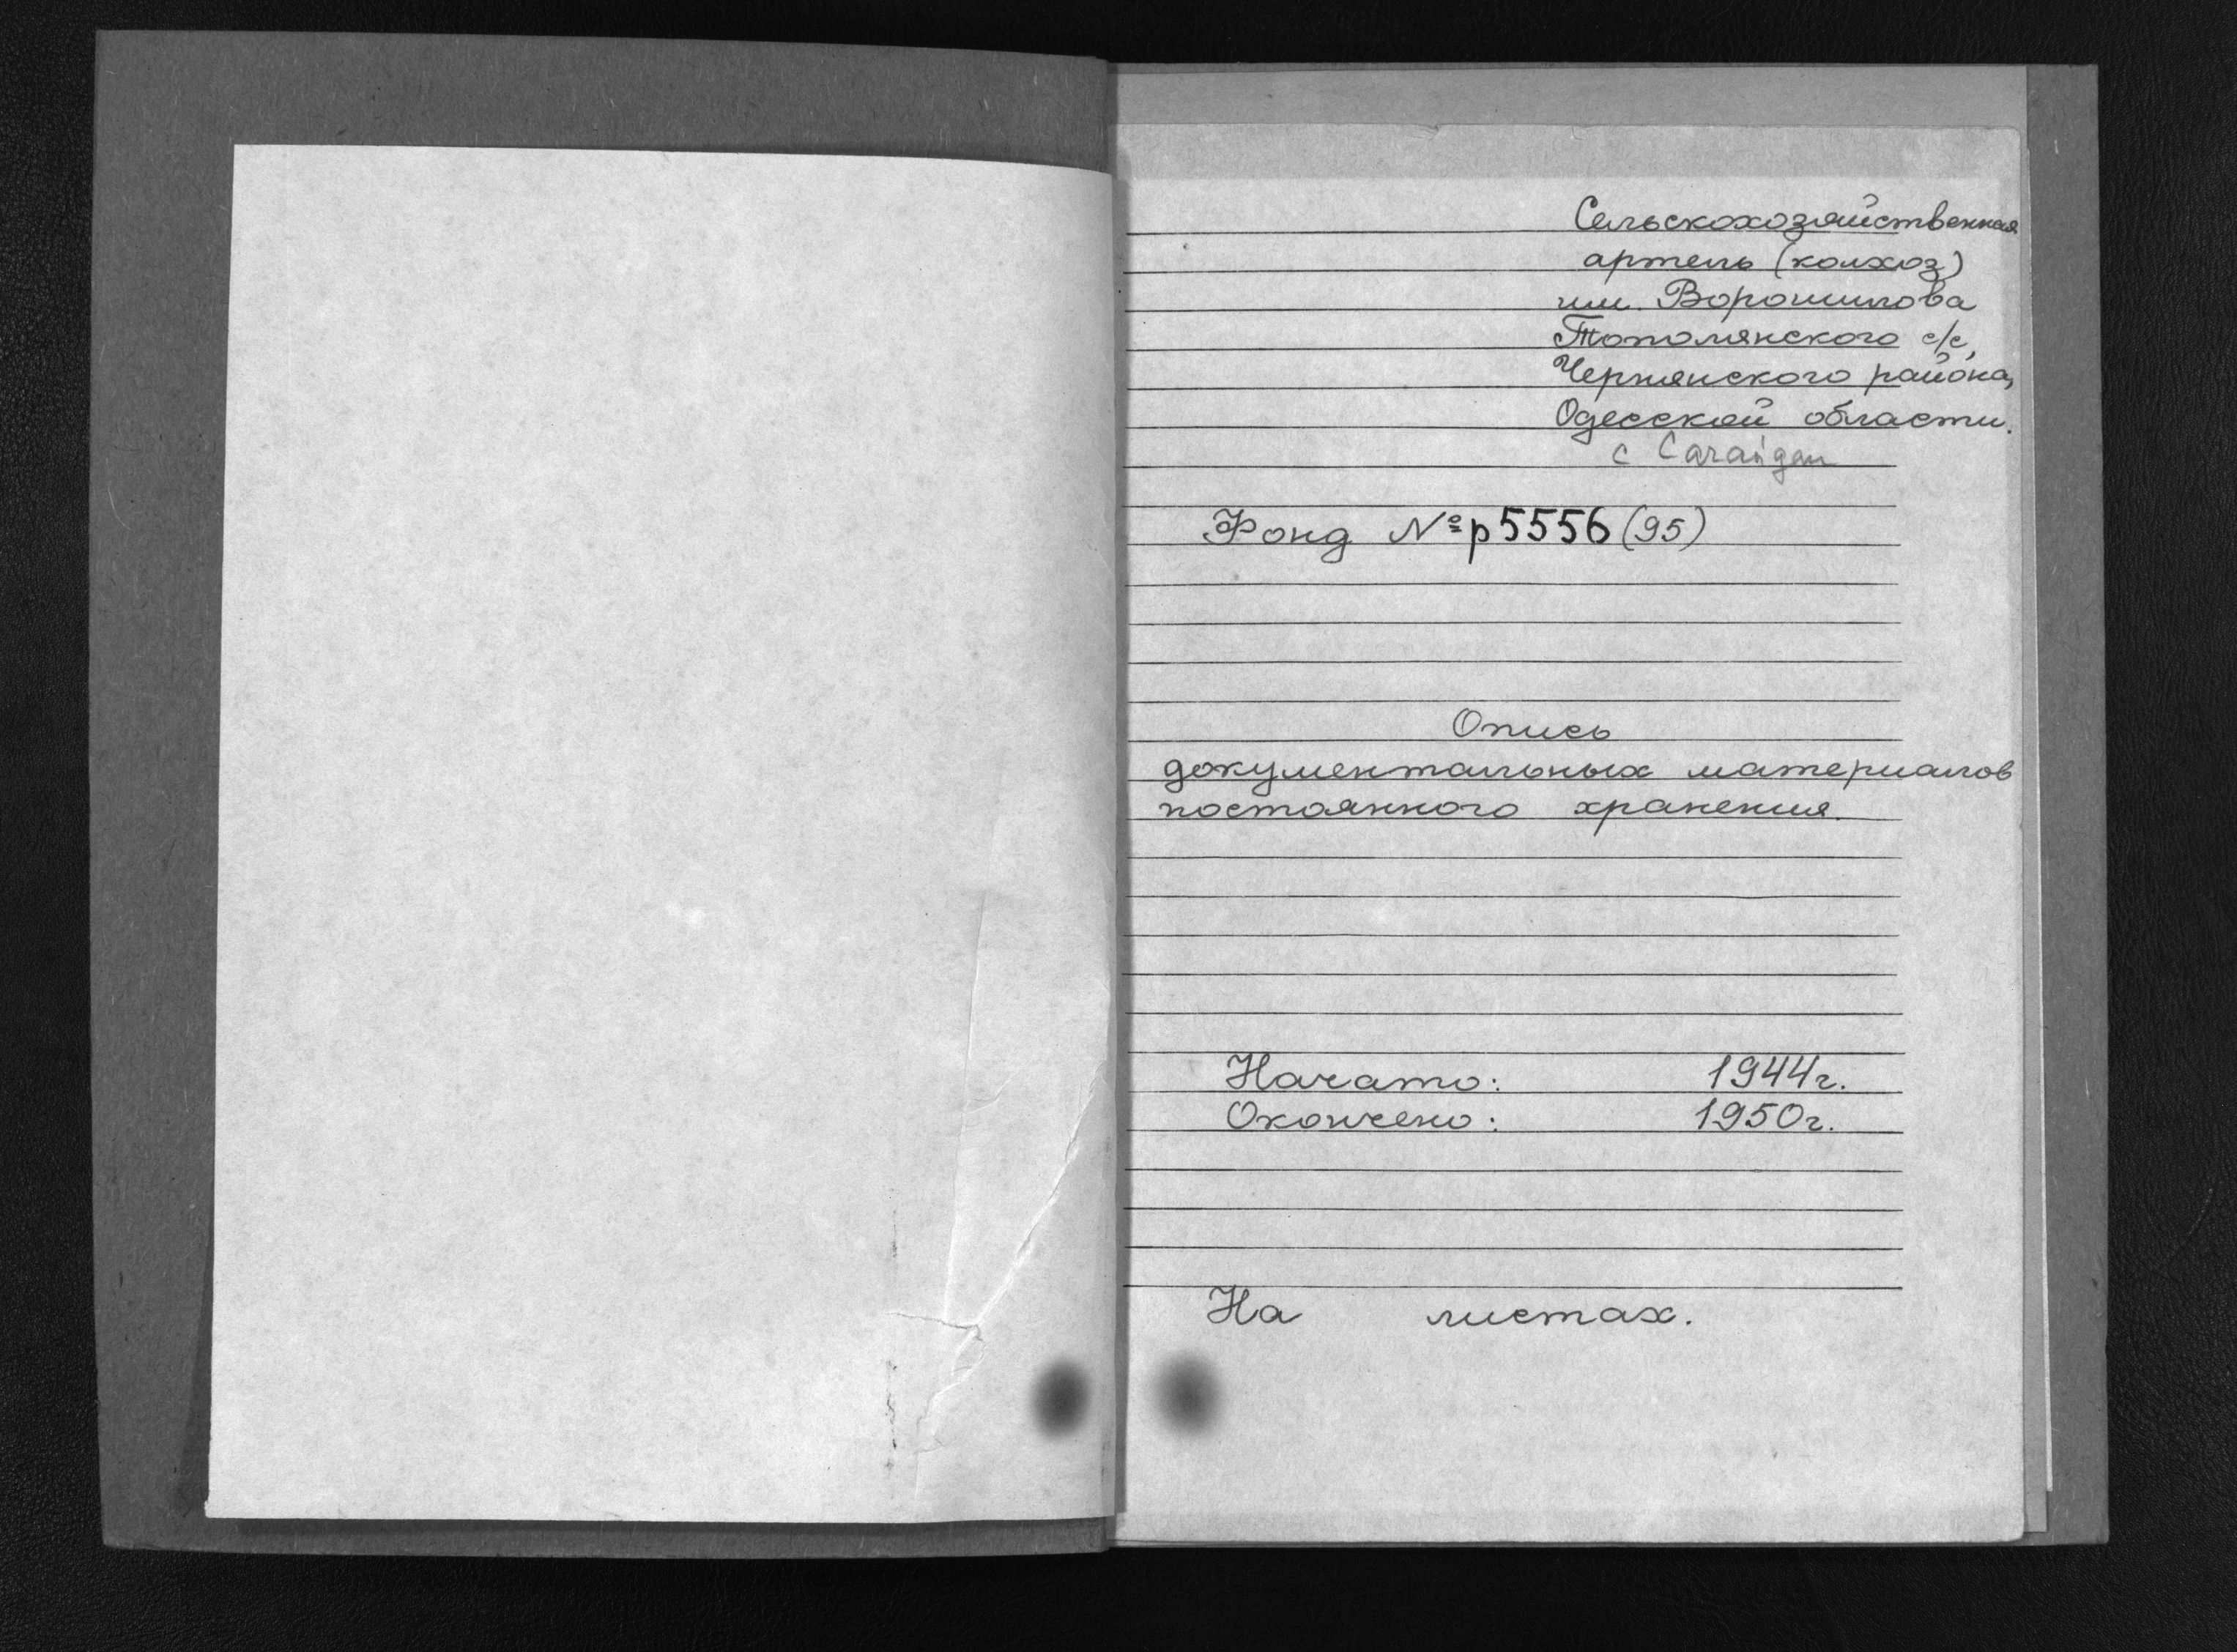 Сельскохозяйственная
артель (колхоз)
им. Ворошилова
Тополянского с/с,
Чернянского района,
Одесской области.
с
Фонд № р5556 (95)
Опись
документальных материалов
постоянного хранения.
Начато: 1944г.
Окончено: 1950г.
На листах.